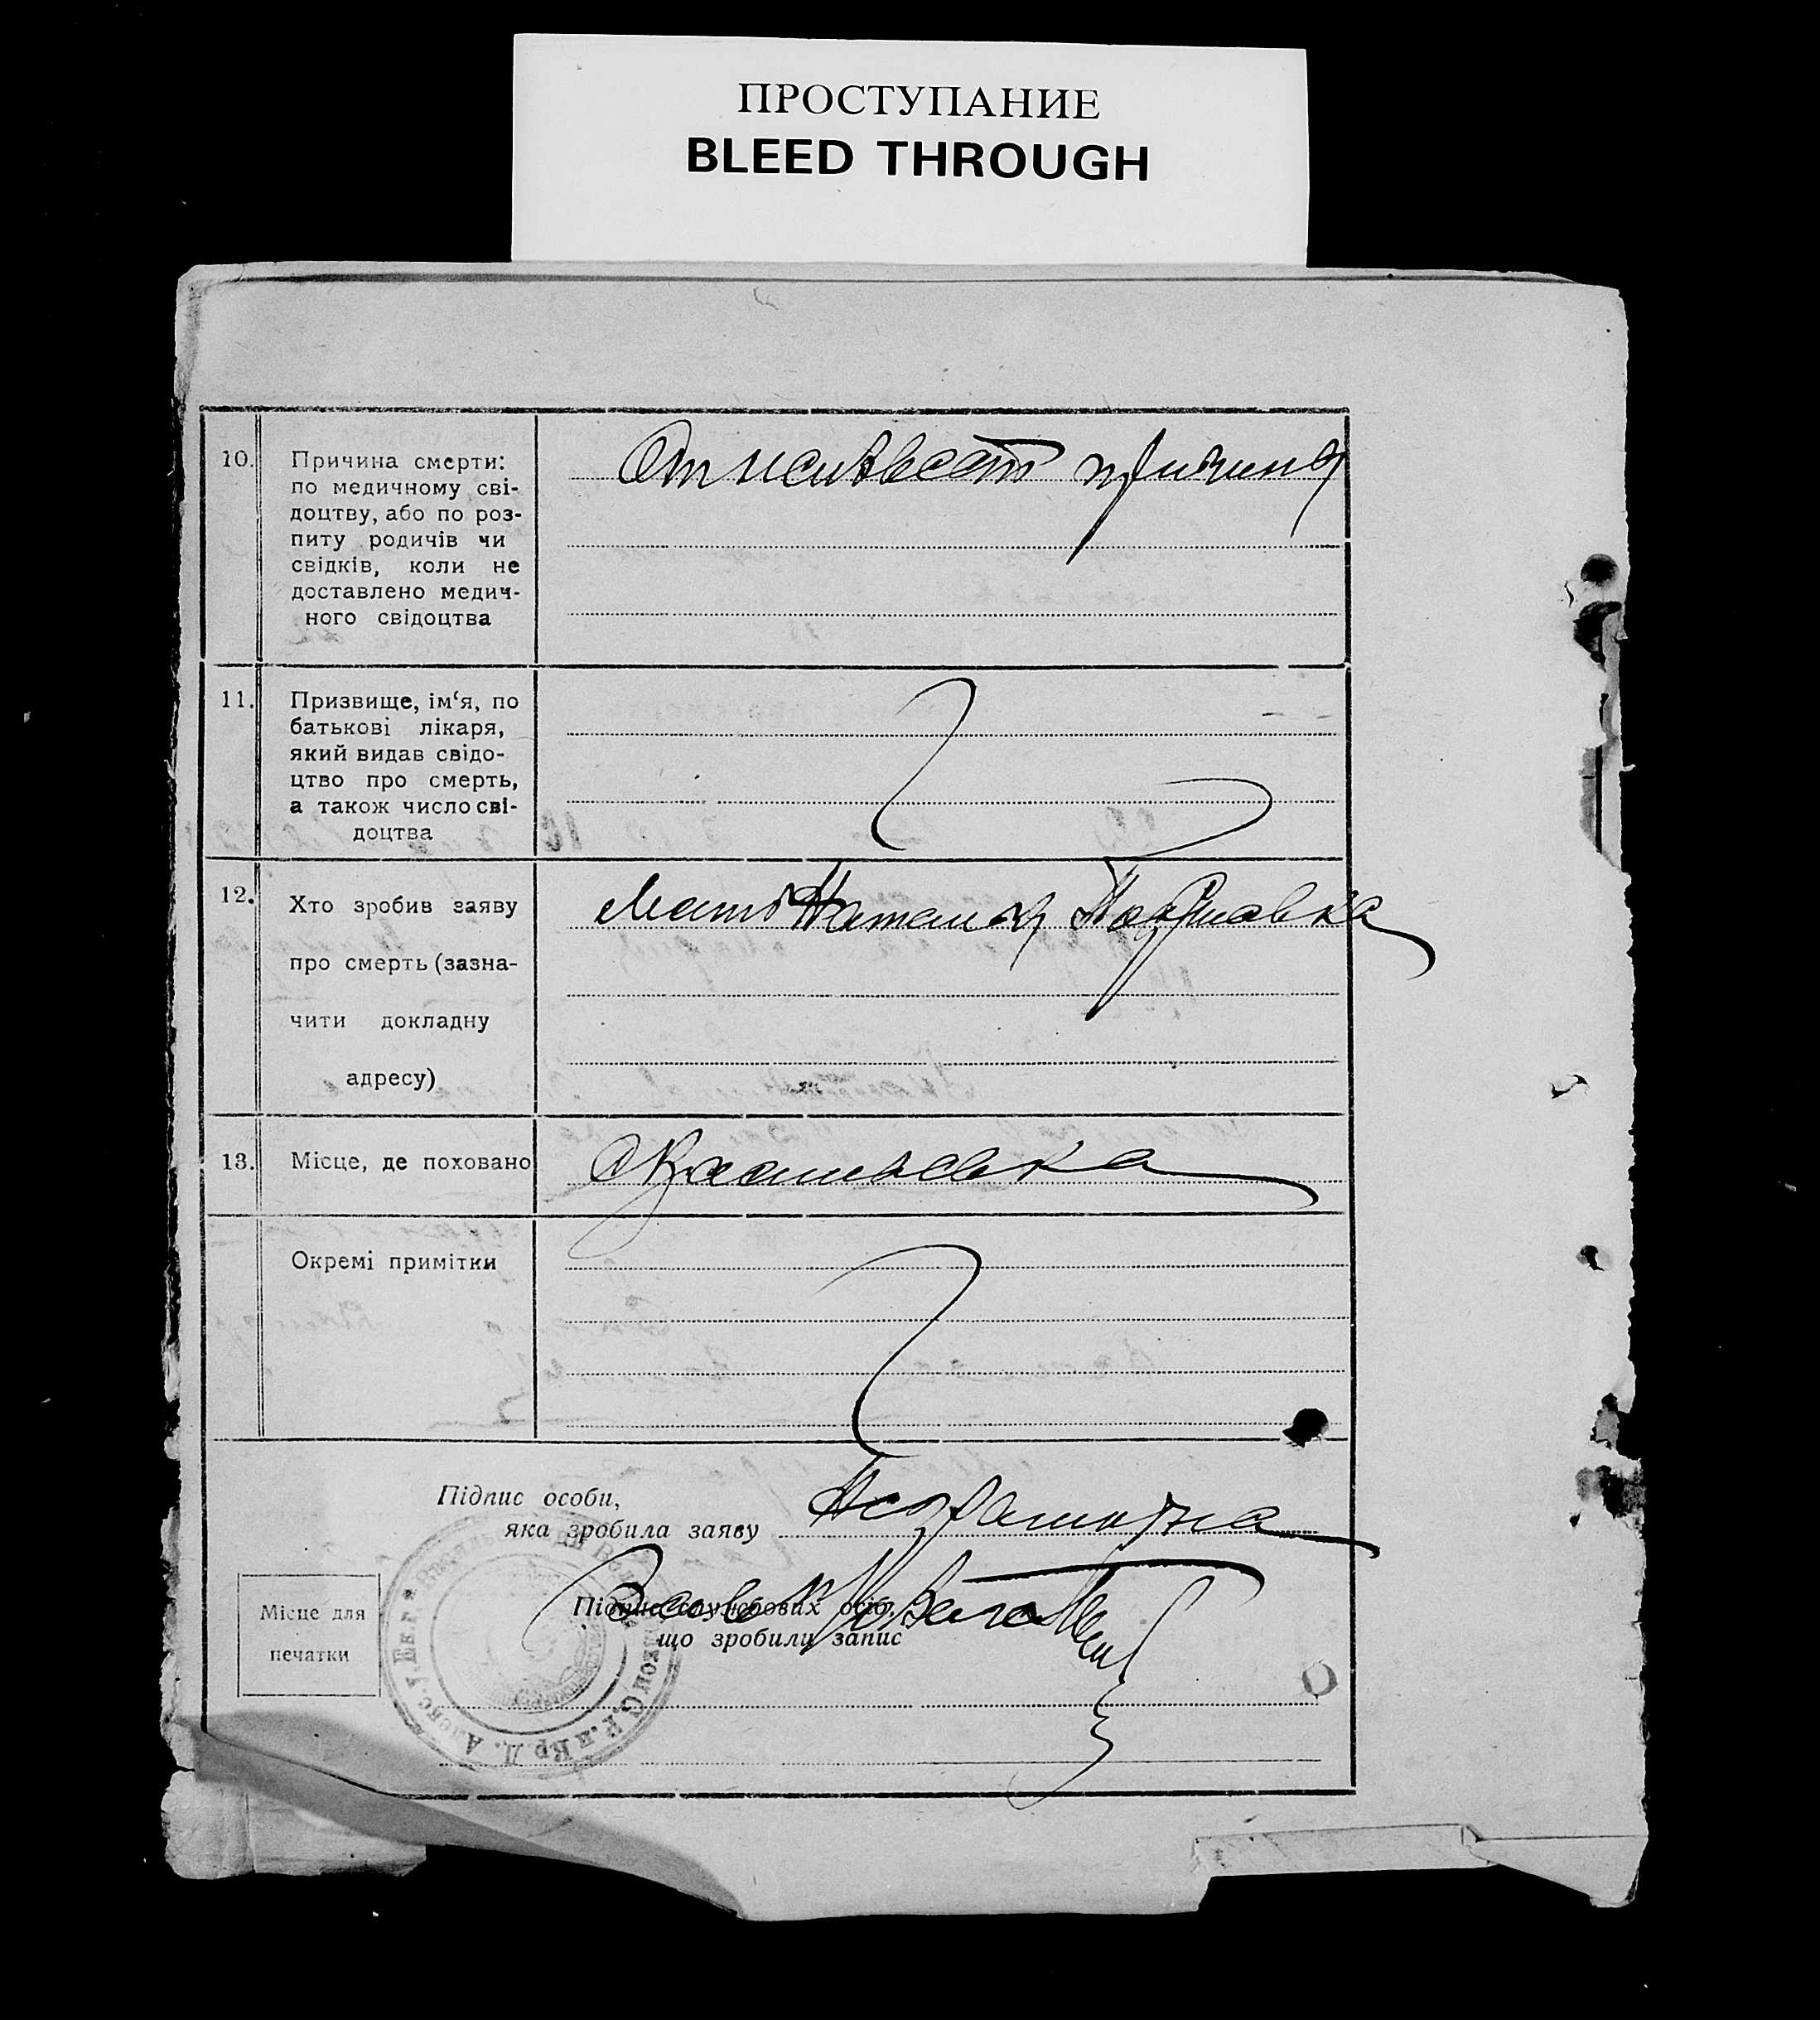 ПРОСТУПАНИЕ
BLEED THROUGH
10.
Причина смерти:
по медичному сві-
доцтву, або по роз-
питу родичів чи
свідків, коли не
доставлено медич-
ного свідоцтва
От неизвест причины
11.
Призвище, ім‘я, по
батькові лікаря,
який видав свідо-
цтво про смерть,
а також число сві-
доцтва
12.
Хто зробив заяву
про смерть (зазна-
чити докладну
адресу)
Мать Наталия
13.
Місце, де поховано
Окремі примітки
Підпис особи,
яка зробила заяву
Неграмотна
Місце для
печатки
Підпис службових осіб,
що зробили запис